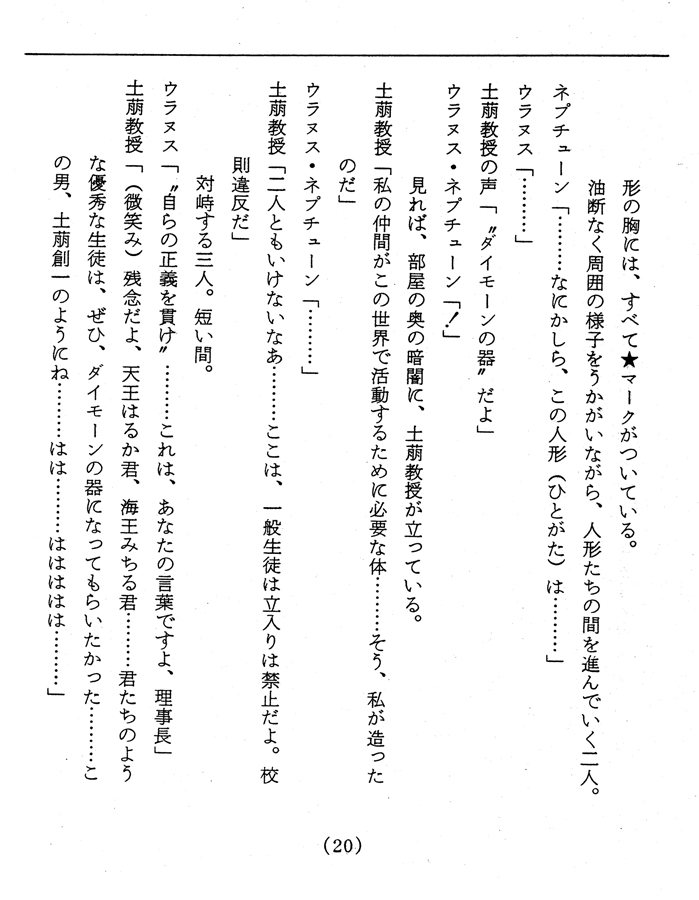 形の胸には、すべて★マークがついている。
油断なく周囲の様子をうかがいながら、人形たちの間を進んでいく二人。
ネプチューン「………なにかしら、この人形（ひとがた）は………」
ウラヌス「………」
土萠教授の声「〝ダイモーンの器〟だよ」
ウラヌス・ネプチューン「！」
見れば、部屋の奥の暗闇に、土萠教授が立っている。
土萠教授「私の仲間がこの世界で活動するために必要な体………そう、私が造った
のだ」
ウラヌス・ネプチューン「………」
土萠教授「二人ともいけないなあ………ここは、一般生徒は立入りは禁止だよ。校
則違反だ」
対峙する三人。短い間。
ウラヌス「〝自らの正義を貫け〟………これは、あなたの言葉ですよ、理事長」
土萠教授「（微笑み）残念だよ、天王はるか君、海王みちる君………君たちのよう
な優秀な生徒は、ぜひ、ダイモーンの器になってもらいたかった………こ
の男、土萠創一のようにね………はは………ははははは………」
(20)